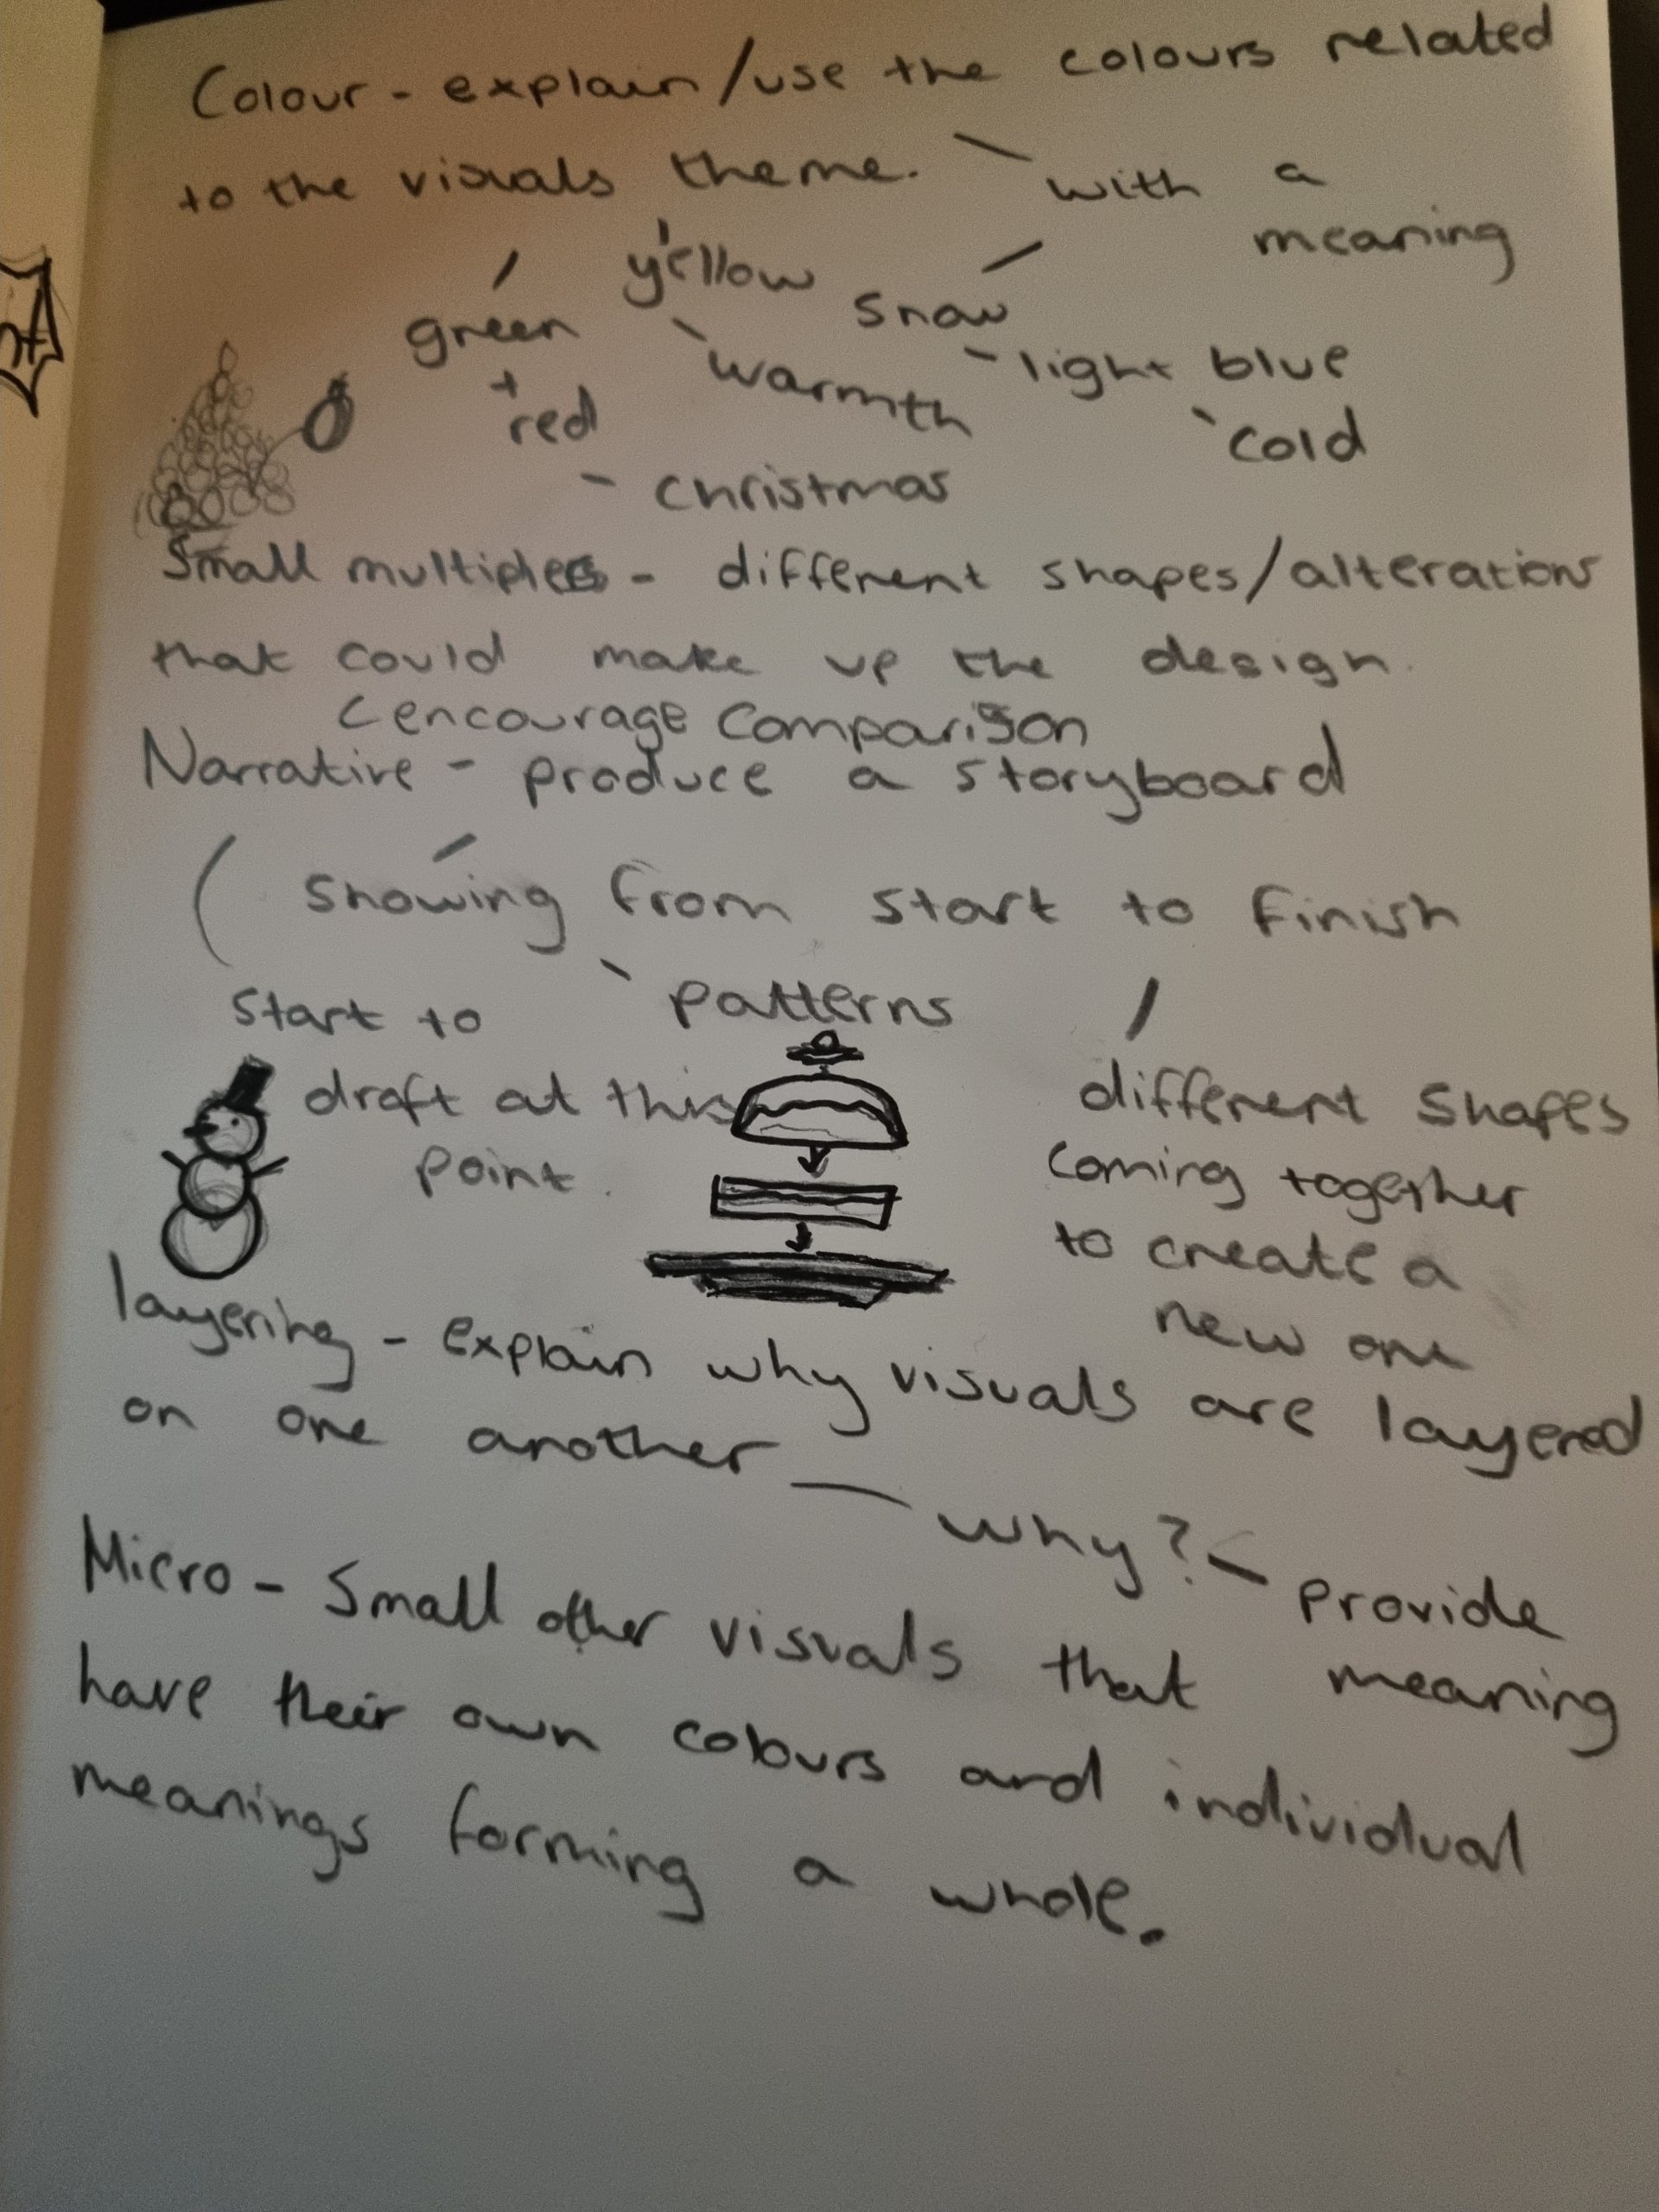 Colour - explain/use the colours related
to the visuals theme. - with a
meaning
yellow
green
snow
+
red
warmth
light blue
cold
- christmas
Small multiples - different shapes/alterations
that could make up the design.
encourage comparison
Narrative - produce a storyboard
( showing from start to finish
patterns
start to
draft at this
point.
different shapes
coming together
to create a
new one
layering - explain why visuals are layered
on one another - why? - provide
meaning
Micro - Small other visuals that
have their own colours and individual
meanings forming a whole.